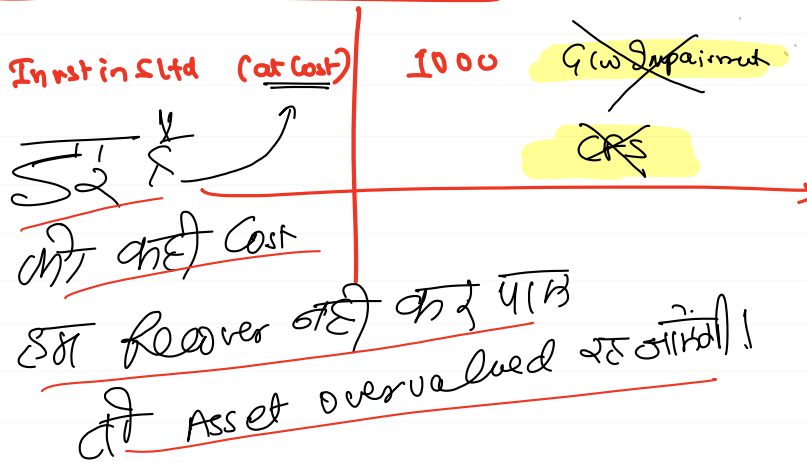 Invst in S Ltd (at Cost) 1000 G/w Impairment
CFS
डर है
की कही Cost
हम Recover नही कर पाये
तो Asset overvalued रह जायेगी।